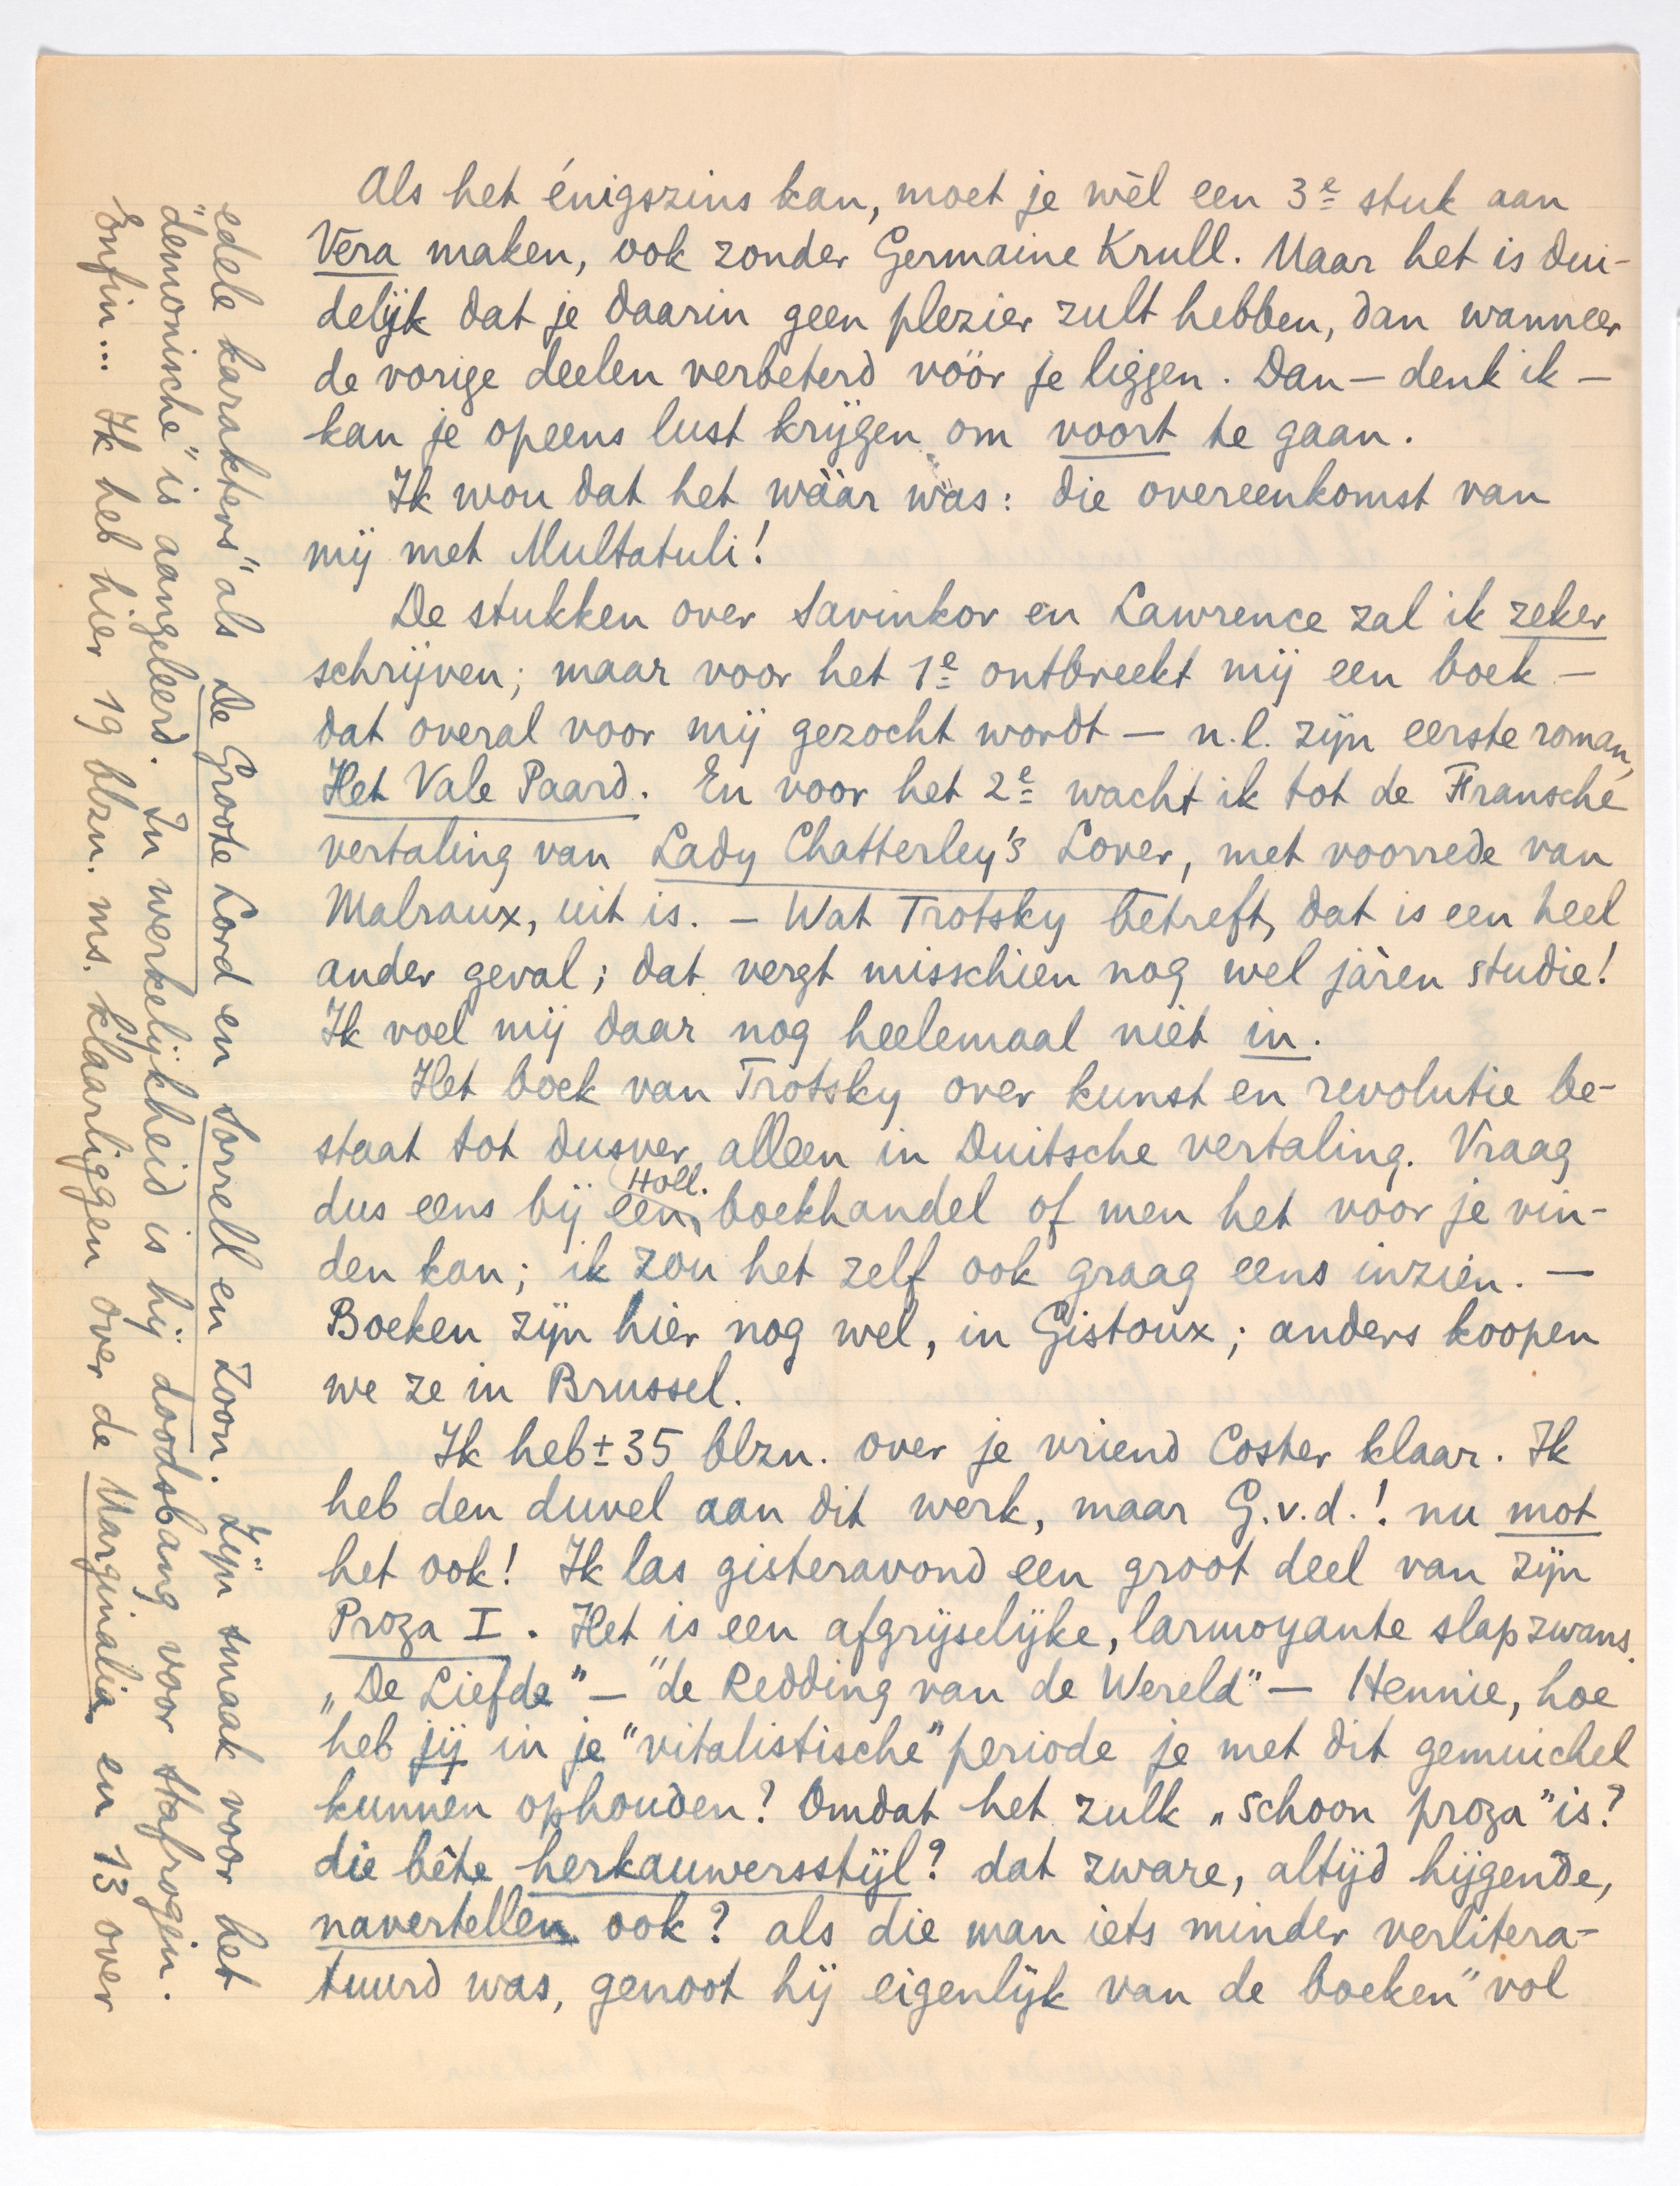 Als het énigszins kan, moet je wèl een 3e stuk aan
Vera maken, ook zonder Germaine Krull. Maar het is dui-
delijk dat je daarin geen plezier zult hebben, dan wanneer
de vorige deelen verbeterd vóór je liggen. Dan — denk ik —
kan je opeens lust krijgen om voort te gaan.
Ik wou dat het wáár was: die overeenkomst van
mij met Multatuli!
De stukken over Savinkov en Lawrence zal ik zeker
schrijven; maar voor het 1e ontbreekt mij een boek —
dat overal voor mij gezocht wordt — n.l. zijn eerste roman,
Het Vale Paard. En voor het 2e wacht ik tot de Fransche
vertaling van Lady Chatterley's Lover, met voorrede van
Malraux, uit is. — Wat Trotsky betreft, dat is een heel
ander geval; dat vergt misschien nog wel jàren studie!
Ik voel mij daar nog heelemaal niet in.
Het boek van Trotsky over kunst en revolutie be-
staat tot dusver alleen in Duitsche vertaling. Vraag
dus eens bij een Holl. boekhandel of men het voor je vin-
den kan; ik zou het zelf ook graag eens inzien. —
Boeken zijn hier nog wel, in Gistoux; anders koopen
we ze in Brussel.
Ik heb ± 35 blzn. over je vriend Coster klaar. Ik
heb den duvel aan dit werk, maar G.v.d.! nu mot
het ook! Ik las gisteravond een groot deel van zijn
Proza I. Het is een afgrijselijke, larmoyante slapzwans.
„De Liefde" — "de Redding van de Wereld" — Hennie, hoe
heb jij in je "vitalistische" periode je met dit gemuichel
kunnen ophouden? Omdat het zulk „schoon proza" is?
die bête herkauwersstijl? dat zware, altijd hijgende,
navertellen ook? als die man iets minder verlitera-
tuurd was, genoot hij eigenlijk van de boeken "vol
edele karakters" als De Groote Lord en Sorrell en Zoon. Zijn smaak voor het
"demonische" is aangeleerd. In werkelijkheid is hij doodsbang voor Stafrogin.
Enfin... Ik heb hier 19 blzn. ms. klaarliggen over de Marginalia en 13 over